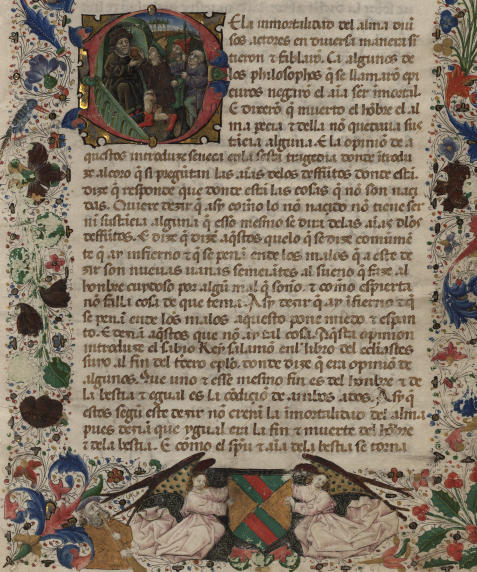 De la inmortalidad del alma diui
sos actores en diuersa manera si
tieron τ fablarõ. Ca algunos de
los philosophos q̃ se llamarõ epi
curos negarõ el aĩa ser inmortal.
E dixerõ q̃ muerto el hõbre el al
ma pecia τ della nõ quedaua sus
tãcia alguna. E la opiniõ de a
questos introduze seneca enla sesta tragedia donde ĩtrodu
ze al coro q̃ si pregũtan las aĩas delos deffũtos donde estã
dize q̃ responde que donde estã las cosas q̃ nõ son naçi
das. Quiere dezir q̃ asy como lo nõ naçido nõ tiene ser
ni sustãcia alguna q̃ esso mesmo se dira delas aĩas dlos
deffũtos. E dize q̃ dize aq̃stos quelo q̃ se dize comũmẽ
te q̃ ay infierno τ q̃ se penã ende los malos q̃ a este de
zir son nueuas uanas semeiãtes al sueño q̃ faze al
hombre cuydoso por algũ mal q̃ soño. τ como espierta
nõ falla cosa de que tema. Asy dezir q̃ ay ĩfierno τ q̃
se penã ende los malos aquesto pone miedo τ espan
to. E deziã aq̃stos que nõ ay tal cosa. Aq̃sta opinion
introduze el sabio Rey salamõ enl libro del eclesiastes
suyo al fin del tercero cplõ. donde dize q̃ era opiniõ de
algunos. Que uno τ esse mesmo fin es del hombre τ de
la bestia τ egual es la cõdiçiõ de ambos ados. Asy q̃
estos segũ este dezir nõ creyã la inmortalidad del alma
pues deziã que ygual era la fin τ muerte del hõbre
τ dela bestia. E como el spũ τ aĩa dela bestia se torna